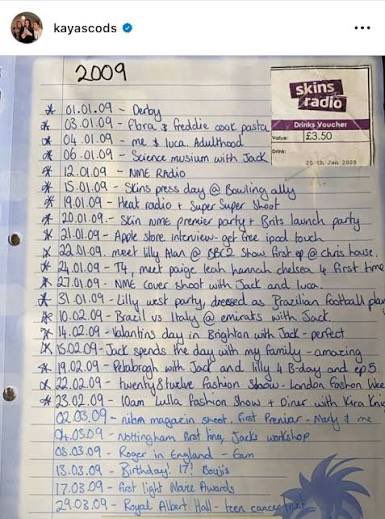 kayascods
2009
skins
radio
Drinks Voucher
Value: £3.50
Drink:
20th Jan 2009
* 01.01.09 - Derby
* 03.01.09 - flora & freddie cook pasta
* 04.01.09 - me & luca. Adulthood
* 06.01.09 - Science musium with Jack
* 12.01.09 - NME RADIO
* 15.01.09 - Skins press day @ Bowling ally
* 19.01.09 - Heat radio + Super Super Shoot
* 20.01.09 - Skin NME premier party + Brits launch party
* 21.01.09 - Apple store interview - get free ipod touch
* 22.01.09. meet lilly Allan @ BBC2 Show first ep @ chris house.
* 24.01.09 - T4, meet paige leah hannah chelsea 4 first time
* 27.01.09 - NME cover shoot with Jack and luca.
* 31.01.09 - Lilly west party, dressed as Brazilian football play
* 10.02.09 - Brazil vs Italy @ emirats with Jack.
* 14.02.09 - Valantins day in Brighton with Jack - perfect
* 15.02.09 - Jack spends the day with my family - amazing
* 19.02.09 - with Jack and lilly 4 B-day and ep5
* 22.02.09 - twenty8twelve fashion show - London Fashon Wee
* 23.02.09 - 10am Lulla Fashion Show + Diner with Kira Knie
02.03.09 - magazin shoot. first Premiar - Marly & me
04.03.09 - Nottingham first , Jacks workshop
08.03.09 - Roger in England - 6am
13.03.09 - Birthday! 17! Boujis
17.03.09 - first light Movie Awards
29.03.09 - Royal Albert Hall - teen cancer trust